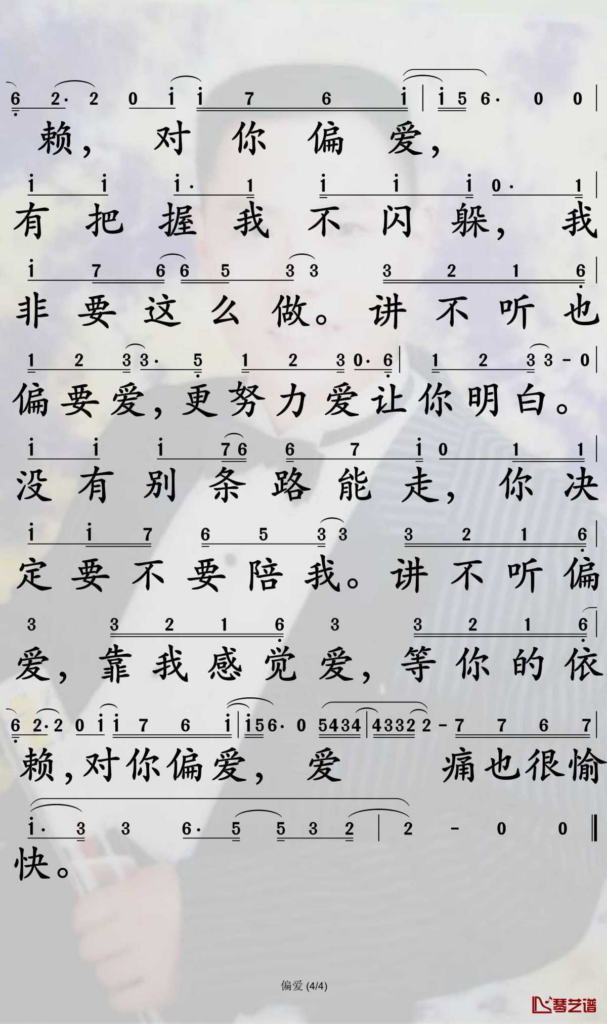 6 2· 2 0 i i 7 6 i | i 5 6· 0 0 |
赖，对你偏爱，
i i i· 1 i i i 0· 1 |
有把握我不闪躲，我
i 7 6 6 5 3 3 3 2 1 6 |
非要这么做。讲不听也
1 2 3 3· 5 1 2 3 0· 6 | 1 2 3 3 - 0 |
偏要爱，更努力爱让你明白。
i i i 7 6 6 7 i 0 1 1 |
没有别条路能走，你决
i i 7 6 5 3 3 3 2 1 6 |
定要不要陪我。讲不听偏
3 3 2 1 6 3 3 2 1 6 |
爱，靠我感觉爱，等你的依
6 2· 2 0 i i 7 6 i | i 5 6· 0 5434 | 43322 - 7 7 6 7 |
赖，对你偏爱，爱 痛也很愉
i· 3 3 6· 5 5 3 2 | 2 - 0 0 ‖
快。
偏爱 (4/4)
琴艺谱